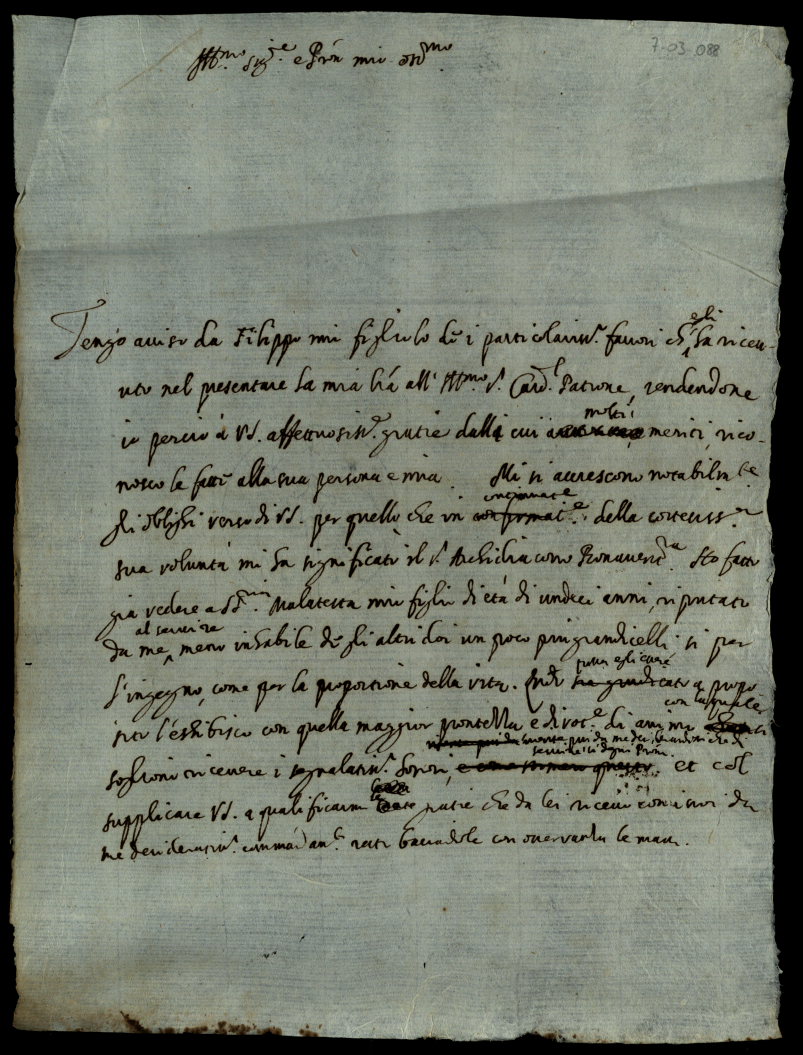 7-03.088
Ill.mo Sig.re e Pron mio oss.mo
Tengo auiso da Filippo mio figliolo de i particolariss.i fauori ch' egli ha riceu-
uto nel presentare la mia l'ra all' Ill.mo S. Card.l Patrone, rendendone
io perciò à VS. affettuosiss.e gratie dalli cui molti meriti, rico-
nosco le fatte alla sua persona e mia. Mi si accrescono notabilm.te
gli oblighi verso di VS. per quello che in della cortesiss.a
sua voluntà mi ha significato il S. Archidiacono Bonauent.ra Ho fatto
già vedere a Malatesta mio figlio di età di undeci anni, riputato
da me al seruire meno inhabile de gli altri doi un poco più grandicelli, si per
l'ingegno, come per la proportione della vita. a propo
sito l'esshibisco con quella maggior prontezza e diuot.e di animo con la quale
soglion riceuere i segnalatiss.i honori, et col
supplicare VS. a qualificarmi le gratie che da lei riceuo con i suoi da
me desideratiss.i comma(n)dam.ti resti baciandole con osseruanza le mani.